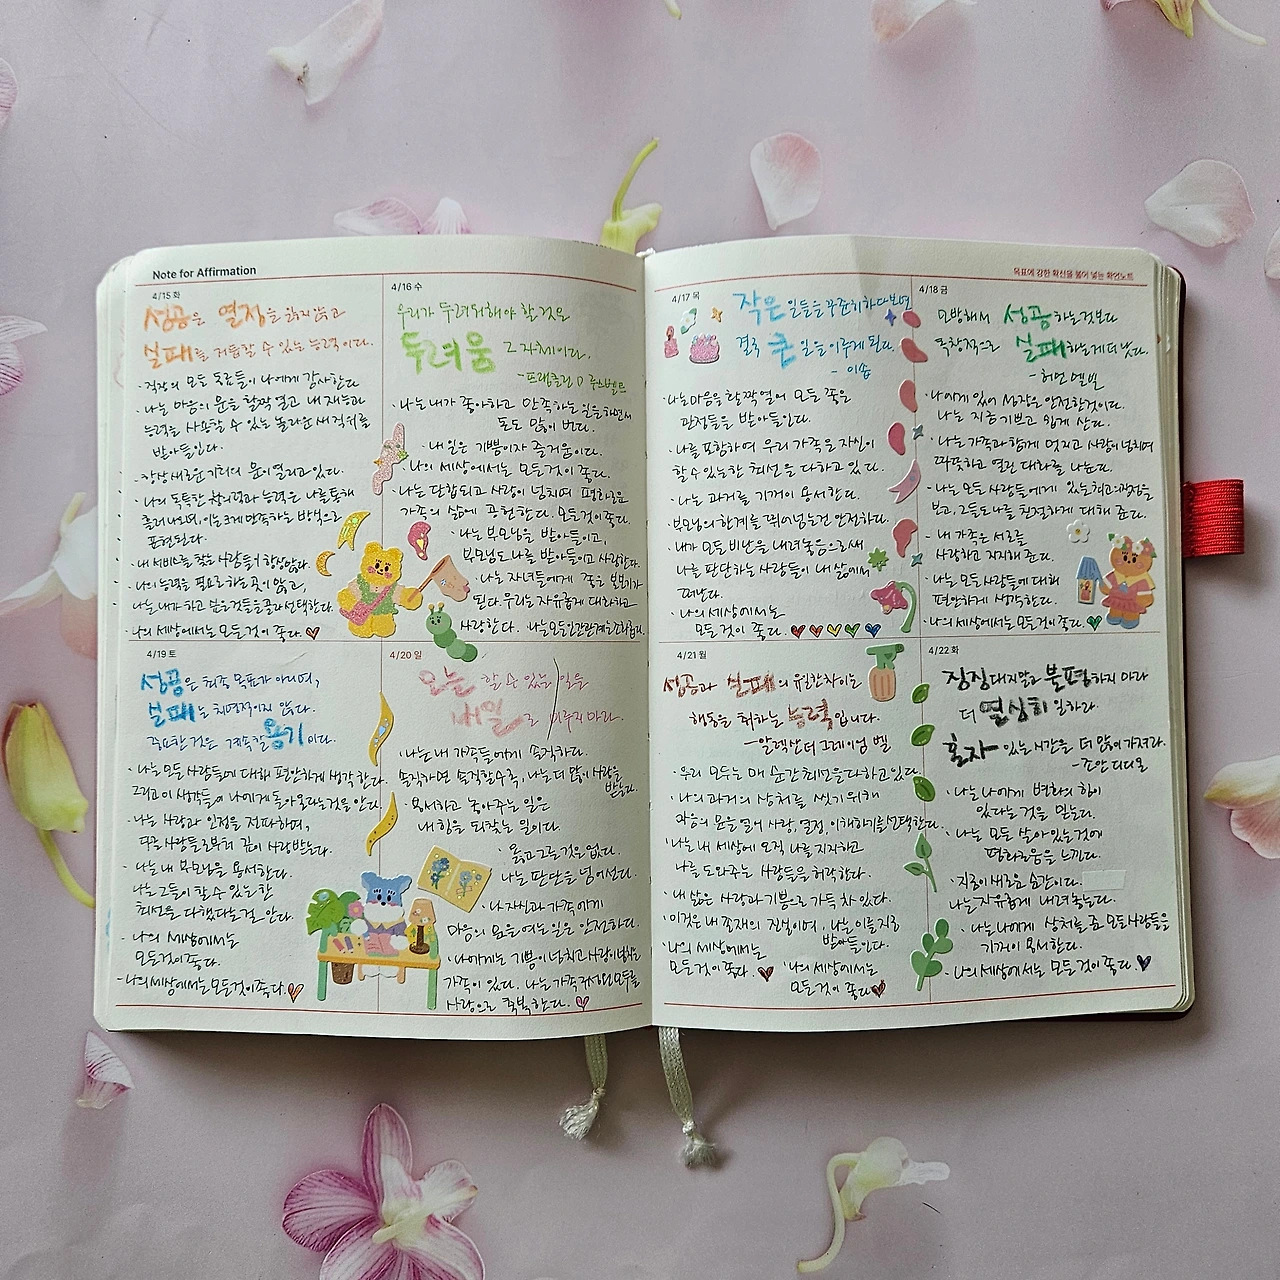 Note for Affirmation
목표에 강한 확신을 불어 넣는 확언노트
4/15 화
성공은 열정을 잃지 않고
실패를 거듭할 수 있는 능력이다.
· 직장의 모든 동료들이 나에게 감사한다
· 나는 마음의 문을 활짝 열고 내 재능과
능력을 사용할 수 있는 놀라운 새 경위를
받아들인다.
· 항상 새로운 기회의 문이 열리고 있다.
· 나의 독특한 창의력과 능력은 나를 통해
흘러나오며, 이는 크게 만족하는 방식으로
표현된다.
· 내 서비스를 찾는 사람들이 항상 있다.
· 나의 능력을 필요로 하는 곳이 많고,
나는 내가 하고 싶은 것들을 골라 선택한다.
· 나의 세상에서는 모든 것이 좋다.
4/16 수
우리가 두려워해야 할 것은
두려움 그 자체이다.
- 프랭클린 D 루스벨트
· 나는 내가 좋아하고 만족하는 일을 하면서
돈도 많이 번다.
· 내 일은 기쁨이자 즐거움이다.
· 나의 세상에서는 모든 것이 좋다.
· 나는 단합되고 사랑이 넘치며 평화로운
가족의 삶에 공헌한다. 모든 것이 좋다.
· 나는 부모님을 받아들이고,
부모님도 나를 받아들이고 사랑한다.
· 나는 자녀들에게 좋은 부모가
된다. 우리는 자유롭게 대화하고
사랑한다. 나는 모든 인간관계는 조화롭다.
4/17 목
작은 일들을 꾸준히 하다보면
결국 큰 일을 이루게 된다.
- 이솝
· 나는 마음을 활짝 열어 모든 좋은
관점들을 받아들인다.
· 나를 포함하여 우리 가족은 자신이
할 수 있는 한 최선을 다하고 있다.
· 나는 과거를 기꺼이 용서한다.
· 부모님의 한계를 뛰어넘는 건 안전하다.
· 내가 모든 비난을 내려놓음으로써
나를 판단하는 사람들이 내 삶에서
떠난다.
· 나의 세상에서는
모든 것이 좋다.
4/18 금
모방해서 성공하는 것보다
독창적으로 실패하는 게 더 낫다.
- 허먼 멜빌
· 나에게 있어 성장은 안전한 것이다.
나는 지금 기쁘고 쉽게 산다.
· 나는 가족과 함께 멋지고 사랑이 넘치며
따뜻하고 열린 대화를 나눈다.
· 나는 모든 사람들에게 있는 최고의 장점을
보고, 그들도 나를 친절하게 대해 준다.
· 내 가족은 서로를
사랑하고 지지해 준다.
· 나는 모든 사람들에 대해
편안하게 생각한다.
· 나의 세상에서는 모든 것이 좋다.
4/19 토
성공은 최종 목표가 아니며,
실패는 치명적이지 않다.
중요한 것은 계속할 용기이다.
· 나는 모든 사람들에 대해 편안하게 생각한다.
그리고 이 생각들이 나에게 돌아온다는 것을 안다.
· 나는 사랑과 인정을 전파하며,
다른 사람들로부터 깊이 사랑받는다.
· 나는 내 부모님을 용서한다.
나는 그들이 할 수 있는 한
최선을 다했다는 걸 안다.
· 나의 세상에서는
모든 것이 좋다.
· 나의 세상에서는 모든 것이 좋다.
4/20 일
오늘 할 수 있는 일을
내일로 미루지 마라.
· 나는 내 가족들에게 솔직하다.
솔직하면 솔직할수록, 나는 더 많이 사랑을
받는다.
· 용서하고 놓아주는 일은
내 힘을 되찾는 일이다.
· 옳고 그른 것은 없다.
나는 판단을 넘어선다.
· 나 자신과 가족에게
마음의 문을 여는 일은 안전하다.
· 나에게는 기쁨이 넘치고 사랑이 넘치는
가족이 있다. 나는 가족 구성원 모두를
사랑으로 축복한다.
4/21 월
성공과 실패의 유일한 차이는
행동을 취하는 능력입니다.
- 알렉산더 그레이엄 벨
· 우리 모두는 매 순간 최선을 다하고 있다.
· 나의 과거의 상처를 씻기 위해
마음의 문을 열어 사랑, 열정, 이해하기를 선택한다.
· 나는 내 세상에 오직 나를 지지하고
나를 도와주는 사람들을 허락한다.
· 내 삶은 사랑과 기쁨으로 가득 차 있다.
· 이것은 내 존재의 진실이며, 나는 이를 지금
받아들인다.
· 나의 세상에서는
모든 것이 좋다.
· 나의 세상에서는
모든 것이 좋다
4/22 화
징징대지 말고 불평하지 마라
더 열심히 일하라
혼자 있는 시간을 더 많이 가져라.
- 조안 디디온
· 나는 나에게 변화의 힘이
있다는 것을 믿는다.
· 나는 모든 살아있는 것에
평화로움을 느낀다.
· 지금이 새로운 순간이다.
나는 자유롭게 내려놓는다.
· 나는 나에게 상처를 준 모든 사람들을
기꺼이 용서한다.
· 나의 세상에서는 모든 것이 좋다.